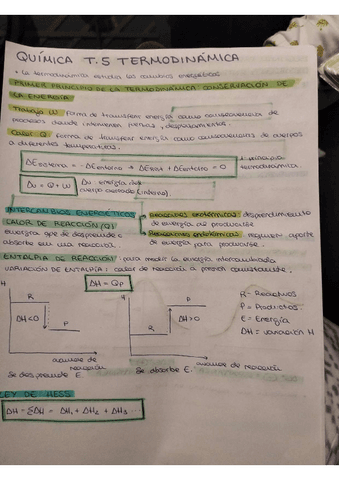 QUÍMICA T.5 TERMODINÁMICA
• La termodinámica estudia los cambios energéticos
PRIMER PRINCIPIO DE LA TERMODINÁMICA CONSERVACIÓN DE
LA ENERGÍA
Trabajo W: forma de transferir energía como consecuencia de
procesos donde intervienen fuerzas, desplazamientos.
Calor Q: forma de transferir energía como consecuencia de cuerpos
a diferentes temperaturas.
ΔE sistema = - ΔE entorno → ΔE sist + ΔE entorno = 0
1º principio
termodinámica.
ΔU = Q + W
ΔU energía de
cuerpo cerrado (interna).
INTERCAMBIOS ENERGÉTICOS
CALOR DE REACCIÓN (Q)
energía que se desprende o
absorbe en una reacción.
Reacciones exotérmicas: desprendimiento
de energía al producirse
Reacciones endotérmicas: requieren aporte
de energía para producirse.
ENTALPÍA DE REACCIÓN: para medir la energía intercambiada
VARIACIÓN DE ENTALPÍA: calor de reacción a presión constante.
ΔH = Qp
H
R
ΔH<0
P
avance de
reacción
Se desprende E.
H
P
ΔH>0
R
avance de reacción
Se absorbe E.
R = Reactivos
P = Productos
E = Energía
ΔH = variación H
LEY DE HESS
ΔH = ΣΔH = ΔH₁ + ΔH₂ + ΔH₃ ...